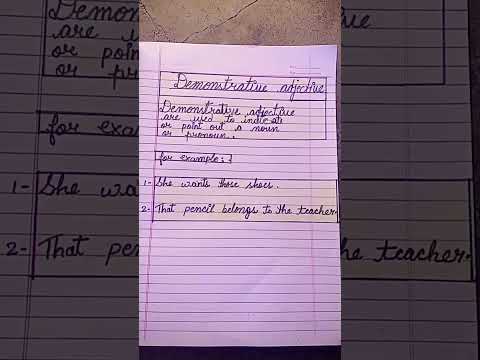 Demonstrative adjective
Demonstrative adjective
are used to indicate
or point out a noun
or pronoun.
for example:
1- She wants those shoes.
2- That pencil belongs to the teacher.